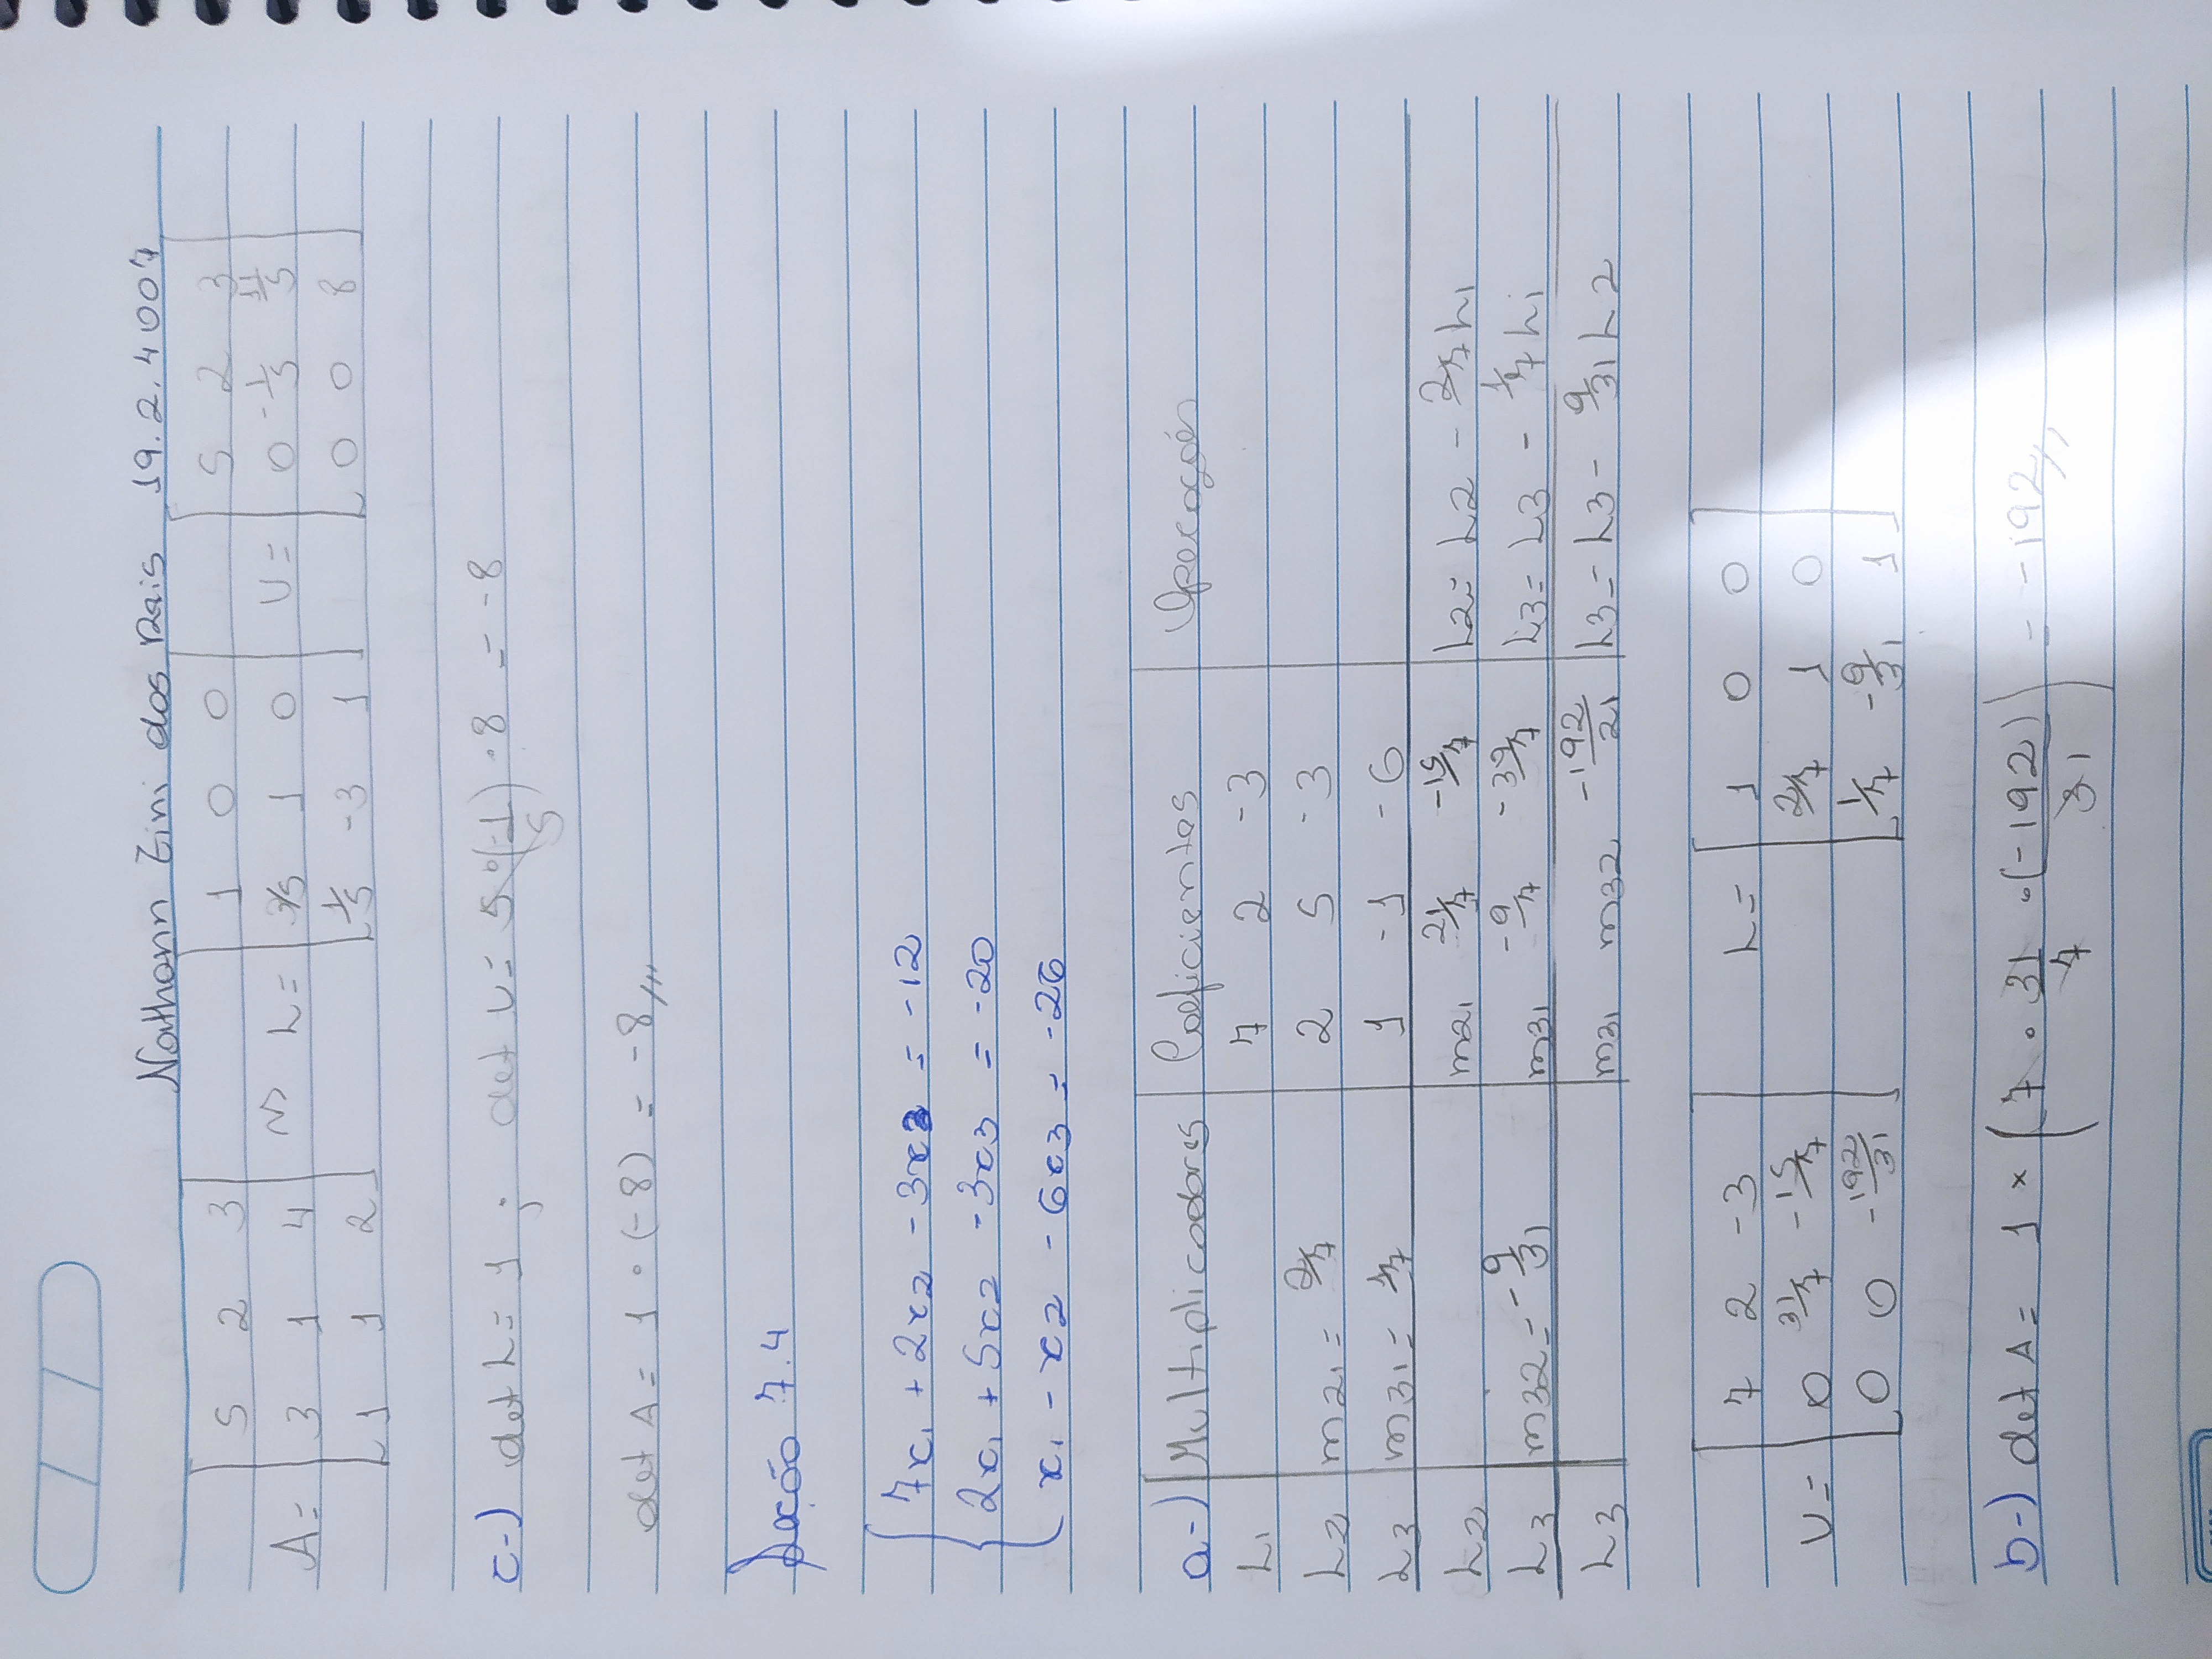 Nathann Zini dos Reis 19.2.4007
A = [5 2 3; 3 1 4; 1 1 2] ⇒ L = [1 0 0; 3/5 1 0; 1/5 -3 1] U = [5 2 3; 0 -1/5 11/5; 0 0 8]
c-) det L = 1 ; det U = 5 · (-1/5) · 8 = -8
det A = 1 · (-8) = -8,,,
Seção 7.4
7x1 + 2x2 - 3x3 = -12
2x1 + 5x2 - 3x3 = -20
x1 - x2 - 6x3 = -26
a-) Multiplicadores Coeficientes Operações
L1 7 2 -3
L2 m21 = 2/7 2 5 -3
L3 m31 = 1/7 1 -1 -6
L2 m21 21/7 -15/7 L2 = L2 - 2/7 L1
L3 m32 = -9/31 m31 -9/7 -39/7 L3 = L3 - 1/7 L1
L3 m31 m32 -192/21 L3 = L3 - 9/31 L2
U = [7 2 -3; 0 31/7 -15/7; 0 0 -192/31] L = [1 0 0; 2/7 1 0; 1/7 -9/31 1]
b-) det A = 1 × (7 · 31/7 · (-192)/31) = -192,,